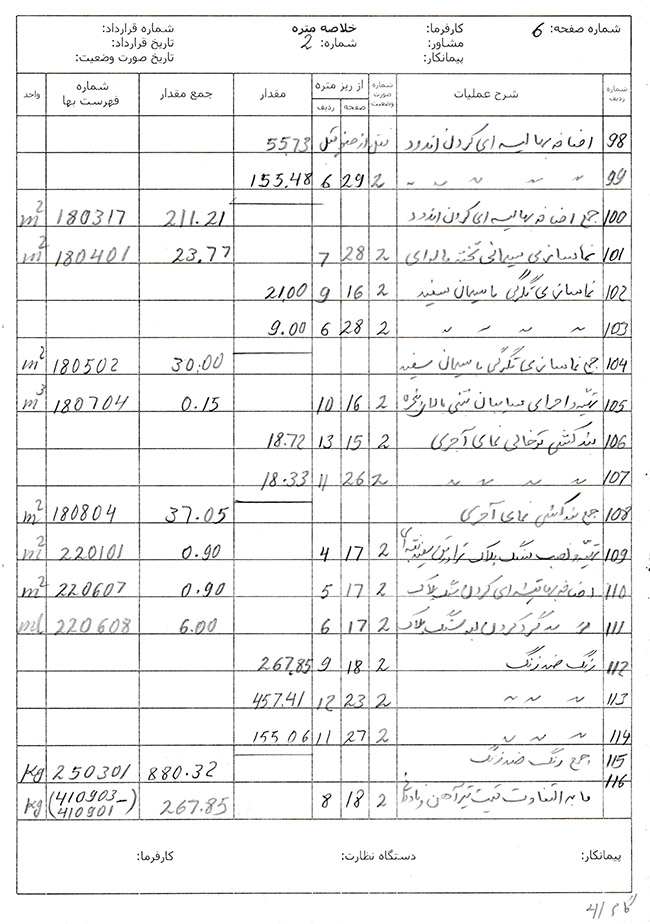 شماره صفحه: 6 کارفرما: خلاصه متره شماره قرارداد:
مشاور: شماره: 2 تاریخ قرارداد:
پیمانکار: تاریخ صورت وضعیت:
شماره ردیف شرح عملیات شماره صورت وضعیت از ریز متره صفحه ردیف مقدار جمع مقدار شماره فهرست بها واحد
98 اضافه بها لیسه ای کردن اندود نقل از صفحه قبل 55.73
99 〃 〃 〃 〃 2 29 6 155.48
100 جمع اضافه بها لیسه ای کردن اندود 211.21 180317 m²
101 نماسازی سیمانی تخته ماله ای 2 28 7 23.77 180401 m²
102 نماسازی تگرگی با سیمان سفید 2 16 9 21.00
103 〃 〃 〃 2 28 6 9.00
104 جمع نماسازی تگرگی با سیمان سفید 30.00 180502 m²
105 تهیه و اجرای بتنی بالای پنجره 2 16 10 0.15 180704 m³
106 بندکشی توخالی نمای آجری 2 15 13 18.72
107 〃 〃 〃 〃 2 26 11 18.33
108 جمع بندکشی نمای آجری 37.05 180804 m²
109 تهیه و نصب سنگ پلاک تراورتن سفید 2 17 4 0.90 220101 m²
110 اضافه بها تیشه ای کردن سنگ پلاک 2 17 5 0.90 220607 m²
111 〃 〃 گرد کردن لبه سنگ پلاک 2 17 6 6.00 220608 ml
112 رنگ ضد زنگ 2 18 9 267.85
113 〃 〃 〃 2 23 12 457.41
114 〃 〃 〃 2 27 11 155.06
115 جمع رنگ ضد زنگ 880.32 250301 kg
116 مابه التفاوت قیمت تیرآهن 2 18 8 267.85 (410903-410901) kg
پیمانکار: دستگاه نظارت: کارفرما: